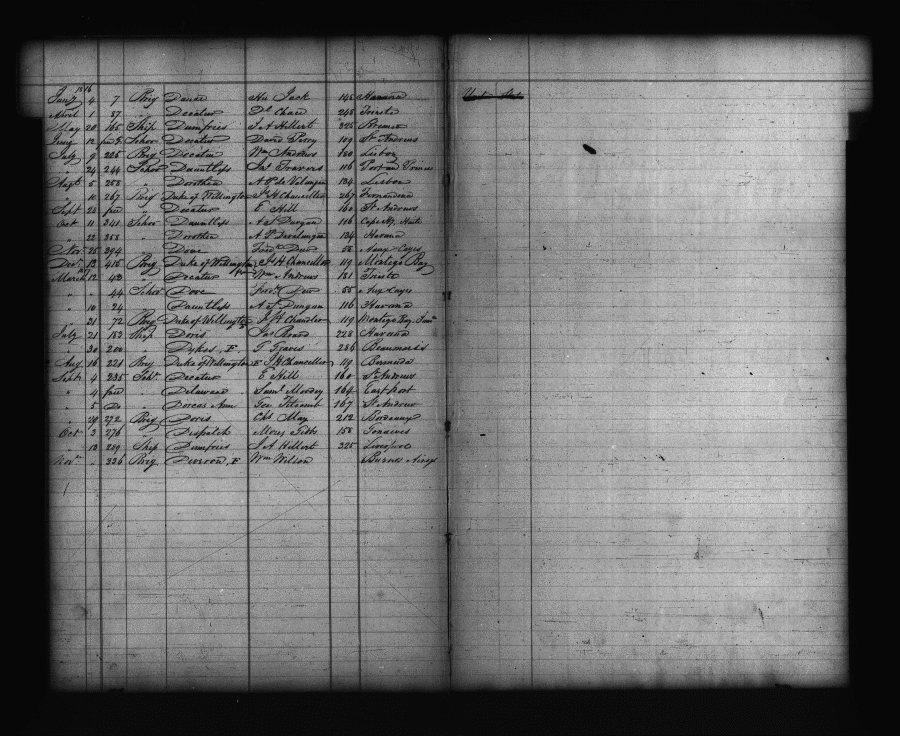 1816
Jany 4 7 Brig Hu Jack 145 Havana
April 1 57 " Decatur Chace 245 Trieste
May 20 165 Ship Dumfries J A Hillert 325 Bremen
June 12 free Schor Decatur David Perry 109 St Andrews
July 9 225 Brig Decatur Wm Andrews 180 Lisbon
" 24 244 Schor Dauntless Jas Travers 116 Port au Prince
Augt 5 258 " Dorothea A P de Valangin 134 Lisbon
" 10 267 Brig Duke of Wellington J H Chancellor 267 Fernandina
Sept 23 free " Decatur E Hill 160 St Andrews
Oct 11 341 Schor Dauntless A S Dungan 116 Cape Hayti
" 22 355 " Dorothea A P Devalangin 134 Havana
Nov 25 394 " Dove Dew 55 Aux Cayes
Decr 13 415 Brig Duke of Wellington J H Chancellor 119 Montego Bay
March 12 43 " Decatur Wm Andrews 181 Trieste
" " 44 Schor Dove Dew 55 Aux Cayes
" 10 24 " Dauntless A S Dungan 116 Havana
" 31 72 Brig Duke of Wellington J H Chandler 119 Montego Bay
July 21 183 Ship Doris Jas Beard 228 Havana
" 30 200 " Dykes, F. T Graves 286 Beaumaris
Aug 16 221 Brig Duke of Wellington F J H Chancellor 119 Bermuda
Sept 4 235 Schr Decatur E Hill 160 St Andrews
" 4 free " Delaware Saml 169 Eastport
" 5 Do " Dorcas Ann Geo 167 St Andrew
" 29 272 Brig Doris Chs May 212 Bordeaux
Oct 3 276 " Dispatch Moses Tibbs 158 Gonaives
" 13 289 Ship Dumfries J A Hillert 325 Liverpool
Novr " 336 Brig F Wm Wilson Buenos Ayres